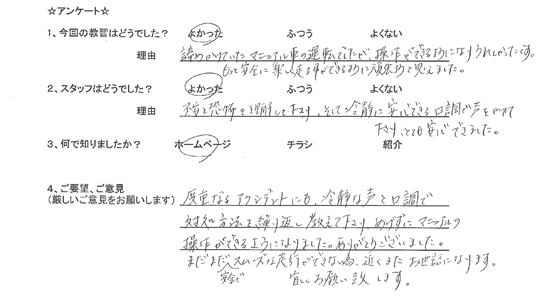 ☆アンケート☆
1、今回の教習はどうでした？ よかった ふつう よくない
理由 諦めかけていたマニュアル車の運転でしたが、操作ができるようになりうれしかったです。
もっと安全に楽しく走る事ができるように頑張ろうと思えました。
2、スタッフはどうでした？ よかった ふつう よくない
理由 不安と恐怖を理解して下さり、そして冷静に安心できる口調で声をかけて
下さり、とても安心できました。
3、何で知りましたか？ ホームページ チラシ 紹介
4、ご要望、ご意見
(厳しいご意見をお願いします)
度重なるアクシデントにも、冷静な声と口調で
対処方法を繰り返し教えて下さり、めげずにマニュアルの
操作ができるようになりました。ありがとうございました。
まだまだスムーズな走行ができない為、近くまたお世話になります。
安全で 宜しくお願い致します。